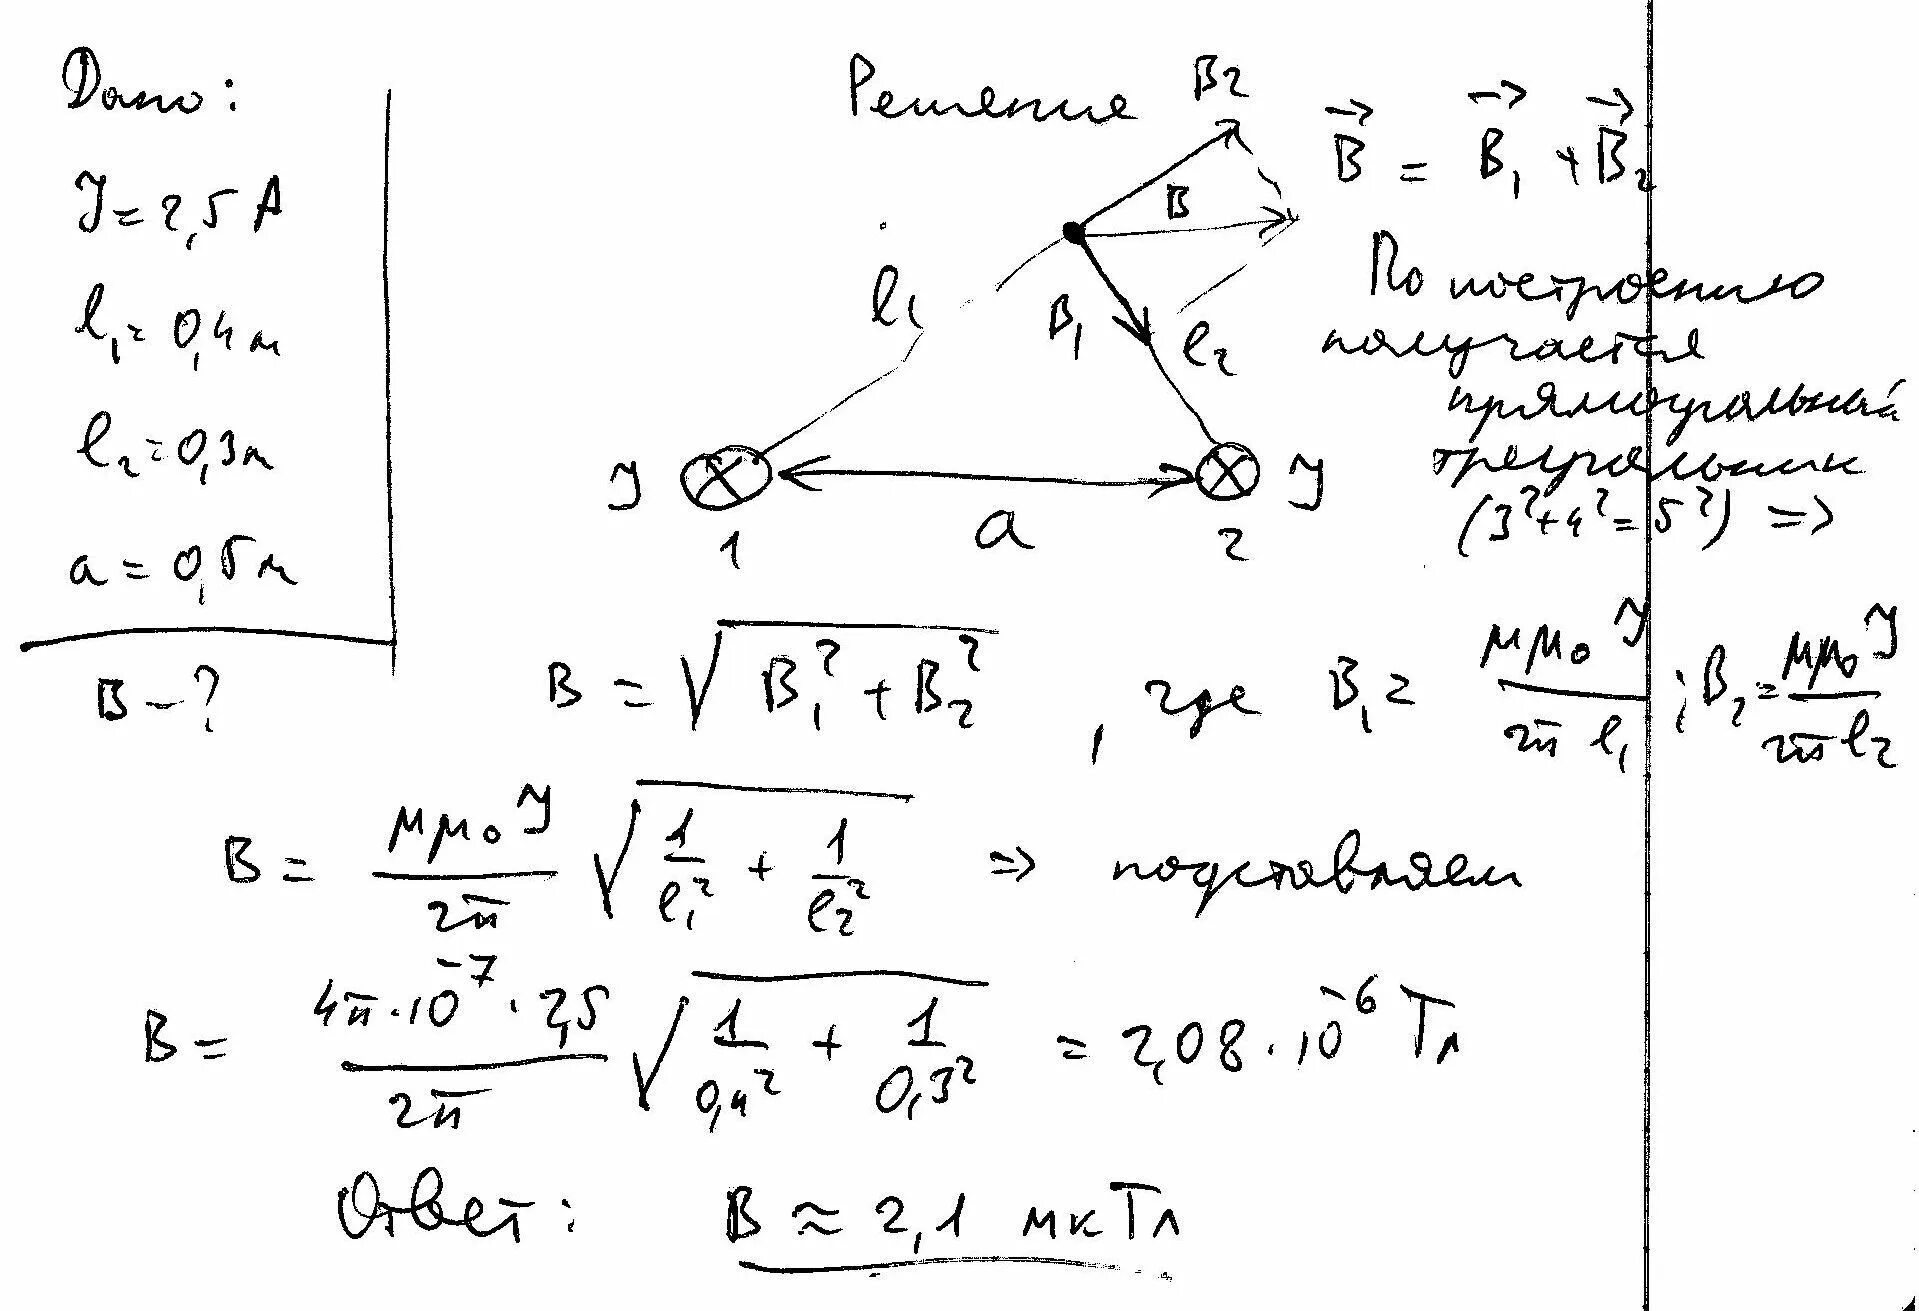 Дано:
J = 2,5 А
l₁ = 0,4 м
l₂ = 0,3 м
a = 0,5 м
B - ?
Решение
B₂
B
B₁
l₁
l₂
J
1
a
2
J
B⃗ = B⃗₁ + B⃗₂
По построению
получается
прямоугольный
треугольник
(3² + 4² = 5²) =>
B = √(B₁² + B₂²) , где B₁ = μμ₀J / 2π l₁ ; B₂ = μμ₀J / 2π l₂
B = μμ₀J / 2π √(1/l₁² + 1/l₂²) => подставляем
B = 4π·10⁻⁷·2,5 / 2π √(1/0,4² + 1/0,3²) = 2,08·10⁻⁶ Тл
Ответ: B ≈ 2,1 мкТл